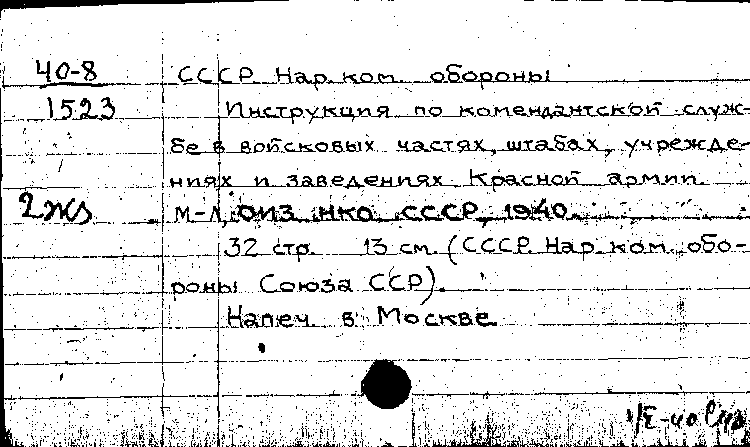 40-8
СССР. Нар. ком. обороны
1523
Инструкция по комендантской служ-
бе в войсковых частях, штабах, учрежде-
ниях и заведениях Красной армии.
2 экз
М-Л, ОИЗ НКО СССР, 1940.
32 стр. 13 см. (СССР. Нар. ком. обо-
роны Союза ССР).
Напеч. в Москве